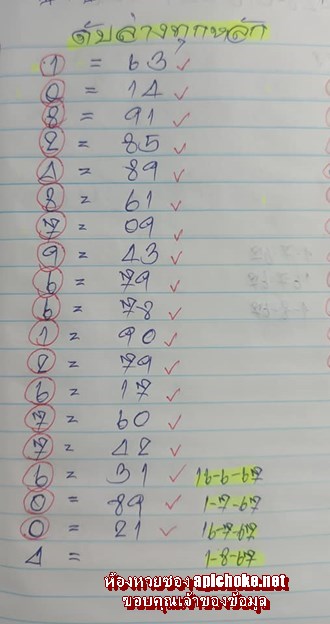 ดับล่างทุกหลัก
1 = 63 ✓
0 = 14 ✓
8 = 91 ✓
2 = 85 ✓
4 = 89 ✓
8 = 61 ✓
7 = 09 ✓
9 = 43 ✓
6 = 79 ✓
6 = 78 ✓
1 = 90 ✓
2 = 79 ✓
6 = 17 ✓
7 = 60 ✓
7 = 42 ✓
6 = 31 ✓ 16-6-67
0 = 89 ✓ 1-7-67
0 = 21 ✓ 16-7-67
4 = 1-8-67
ห้องหวยซอง apichoke.net
ขอบคุณเจ้าของข้อมูล